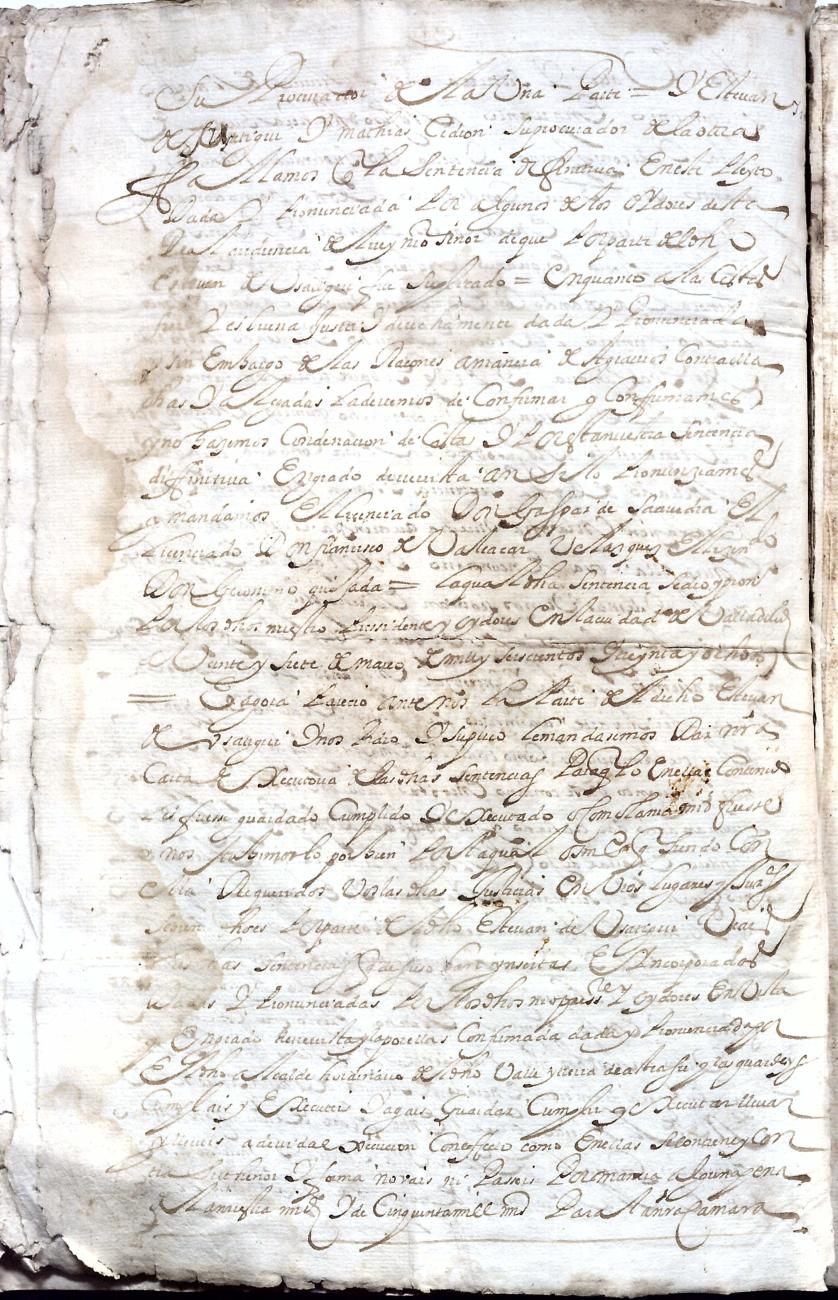 Su Procurador de la Una Parte = Y Estevan
de Usategui Y mathias Cidron su procurador de la otra
fallamos q la Sentencia difinitiva en este Pleyto
Dada Y Pronunciada Por algunos de los oydores desta
Real audiencia del rey nro señor de que Por parte del dho
Estevan de Usategui fue Suplicado = Enquanto a las Costas
fue Y es buena Justa Y derechamente dada Y Pronunciada
y sin Embargo de las Raçones a manera de Agravios Contra ella
dhas Y alegadas la devemos de Confirmar y Confirmamos
y no haçemos Condenacion de Costas Y Por esta nuestra Sentencia
difinitiva En grado de revista ansi lo Pronunziamos
y mandamos El licenciado Don Gaspar de Saavedra El
licenciado Don francisco de Valcacar Velazquez El lizendo
Don Geronimo quesada = la qual dha sentencia se dio y pron
Por los dhos nuestro Pressidente y oydores En la ciudad de Valladolid
a Veinte y Siete de março de mill y seiscientos Y treynta y ocho
= E agora Parecio ante nos La Parte del dicho Estevan
de Usategui Y nos Pidio Y Suplico le mandasemos Dar nra
Carta Executoria de las dhas sentencias Para q lo En ellas Contenido
fuese guardado Cumplido Y Executado o como la nra md fuesse
e nos tubimoslo por bien Por la qual os m q siendo Con
ella Requeridos Vos las dhas Justicias En Vros lugares y Jur
segun dho es Por parte del dho Estevan de Usategui Veais
las dhas sentencias que suso Van ynsertas E Yncorporadas
dadas Y Pronunciadas Por los dhos nro press Y oydores En Vista
y En grado de revista y la por ellas Confirmada dada y Pronunciada por
El dho alcalde hordinario del dho Valle y las guardeys
Cumplais y Executeis Y agais Guardar Cumplir y Executar llevar
y lleveis a devida Execucion Con effecto como En ellas se contiene y Contra
su thenor Y forma no vais ni Paseis Por manera alguna pena
de la nuestra md Y de Cinquenta mill mrs Para la nra Camara